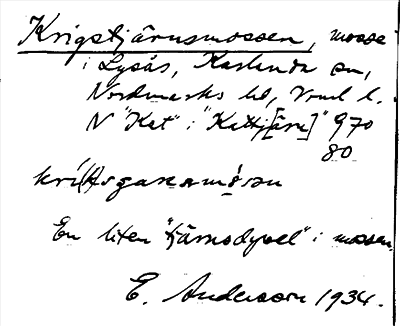 Krigstjärnsmossen, mosse
i Lysås, Karlanda sn,
Nordmarks hd, Vrml l.
N "Kat" i "Kattj[ärn]" 970
80
En liten "tjärnsdypel" i mossen.
E. Andersson 1934.